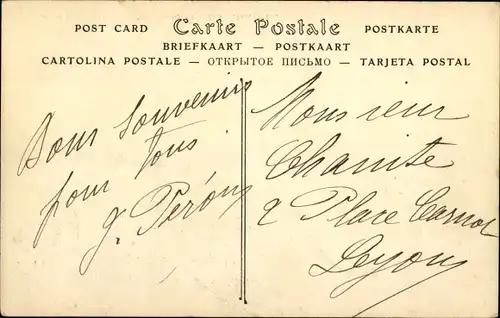 POST CARD Carte Postale POSTKARTE
BRIEFKAART — POSTKAART
CARTOLINA POSTALE — ОТКРЫТОЕ ПИСЬМО — TARJETA POSTAL
Bons Souvenirs
pour tous
J. Péron
Monsieur
Chanite
2 Place Carnot
Lyon